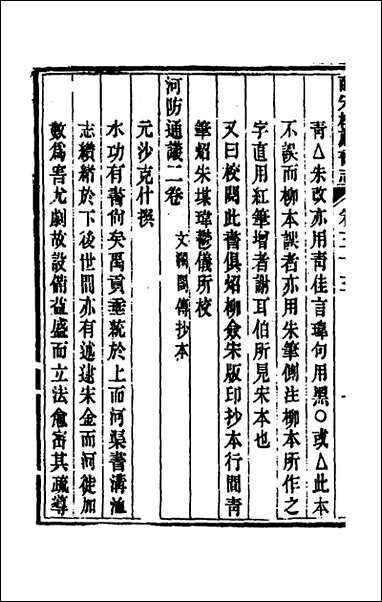 青△朱改亦用青佳言瑋句用黑○或△此本
不誤而柳本誤者亦用朱筆側注柳本所作之
字直用紅筆增者謝耳伯所見宋本也
又曰校閱此書俱炤柳僉宋版印抄本行間青
筆炤朱謀瑋鬱儀所校
河防通議二卷 文瀾閣傳抄本
元沙克什撰
水功有書尙矣禹貢垂統於上而河渠書溝洫
志纘緒於下後世間亦有述逮宋金而河徙加
數爲害尤劇故設備益盛而立法愈密其疏導